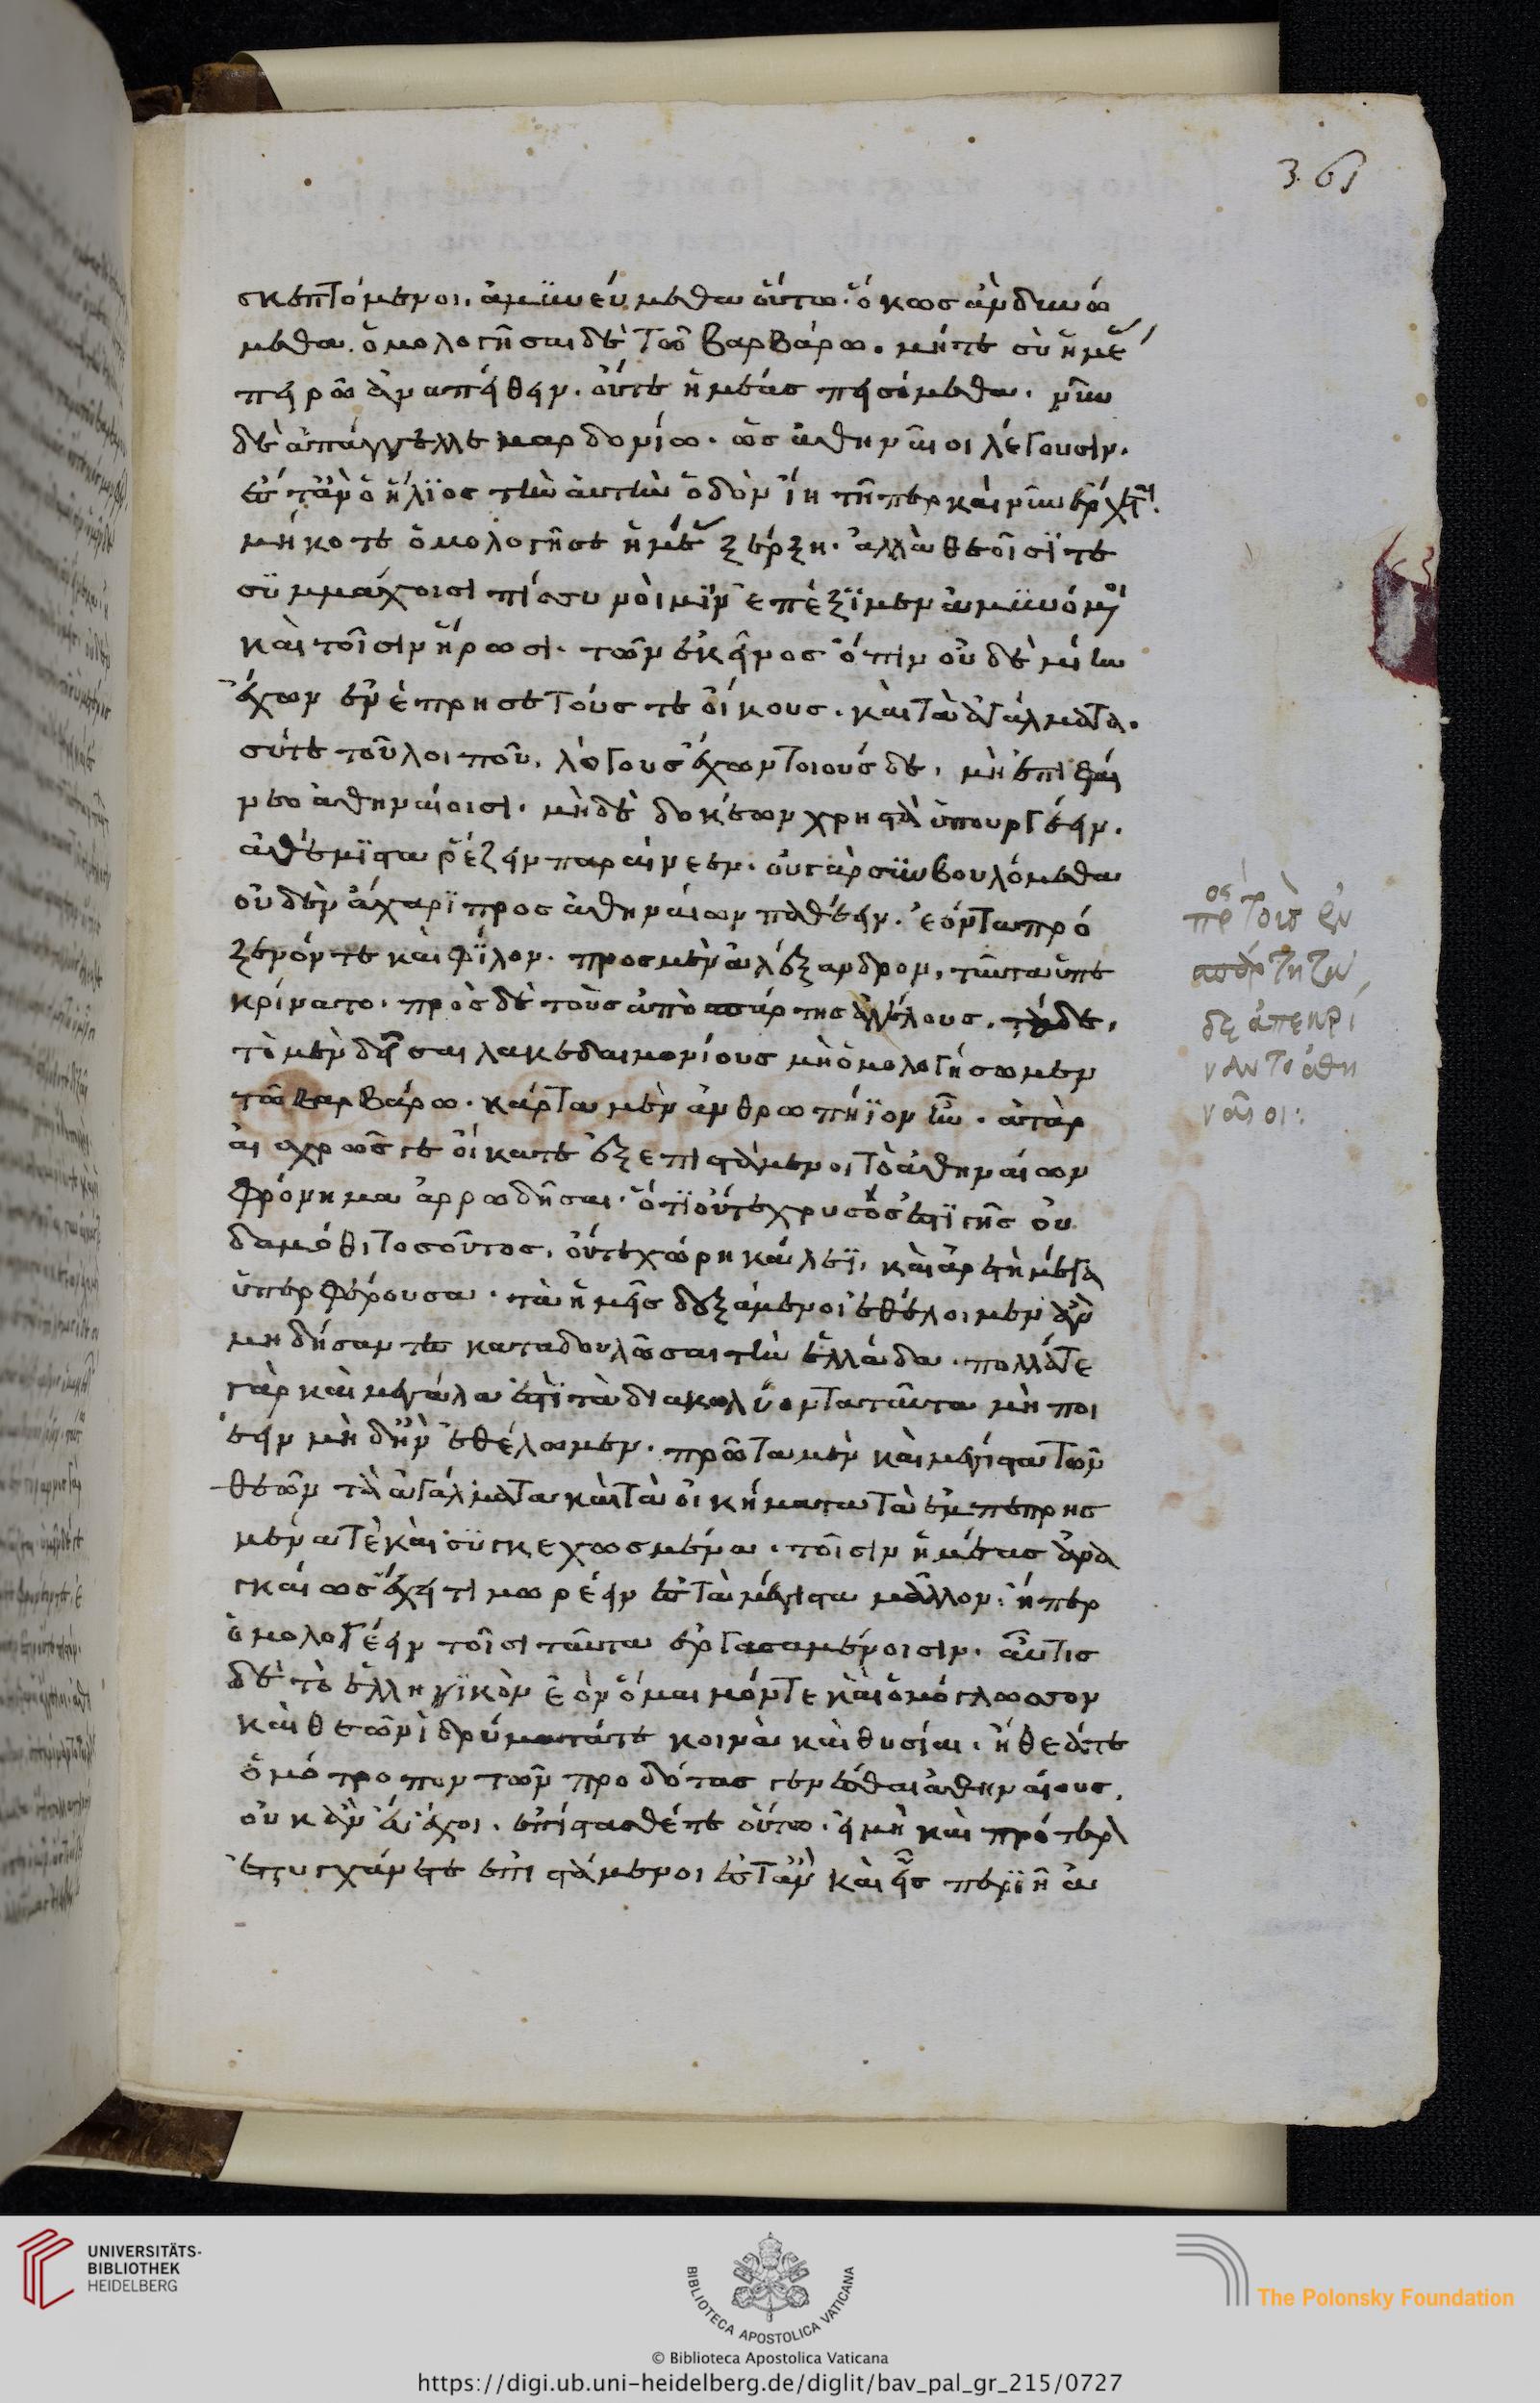 361
σκεπτόμενοι, ἀμϋνεύμεθα οὕτω· ὅκωσ ἂν δυνώ
μεθα. ὁμολογῆσαι δὲ τῶ βαρβάρω. μήτε σὺ ἡμέ
πειρῶ ἀναπείθειν. οὔτε ἡμέασ πεισόμεθα. νῦν
δὲ ἀπάγγελλε μαρδονίω. ὡσ ἀθηναῖοι λέγουσιν.
ἔστἂν ὁ ἥλϊοσ τὴν ἀυτὴν ὁδὸν ἴη τῆπερ καὶ νῦν ἔρχεται.
μήκοτε ὁμολογῆσε ἡμέ ξέρξη. ἀλλὰ θεοῖσΐ τε
σϋμμάχοισι πίσσυνοὶ μϊν ἐπέξϊμεν ἀμϋνόμενοι
καὶ τοῖσιν ἥρωσι. τῶν ἐκεῖνοσ ὄπιν οὐδὲ μίαν
ἔχων ἐνέπρησε τούσ τε οἴκουσ. καὶ τὰ ἀγάλματα.
σύτε τοῦ λοιποῦ, λόγουσ ἔχων τοιούσδε, μὴ ἐπιφαί
νεο ἀθηναίοισι. μὴδὲ δοκέων χρηστὰ ὑπουργέειν.
ἀθέμϊστα ῥέζειν παραίνεεν. οὐ γάρ σϋν βουλόμεθα
οὐδὲν ἄχαρϊ προσ ἀθηναίων παθέειν. ἐόντα πρό
ξενόν τε καὶ φΐλον. προσ μὲν ἀλέξανδρον, ταῦτα ὑπε
κρίνατο. πρὸσ δὲ τοὺσ ἀπὸ σπάρτησ ἀγγέλουσ. τάδε,
τὸ μὲν δεῖσαι λακεδαιμονίουσ μὴ ὁμολογήσωμεν
τῶ βαρβάρω. κάρτα μὲν ἀνθρωπήϊον ἦν. ἀτὰρ
αἰσχρῶσ γε οἴκατε ἐξεπιστάμενοι τὸ ἀθηναίων
φρόνημα ἀρρωδῆσαι. ὅτϊ οὔτε χρυσόσ ἐστϊ γῆσ οὐ
δαμόθι τοσοῦτοσ, οὔτε χώρη κάλλεϊ, καὶ ἀρετὴ μέγα
ὑπερφέρουσα. τὰ ἡμεῖσ δεξάμενοι ἐθέλοιμεν ἂν
μηδήσαντεσ καταδουλῶσαι τὴν ἑλλάδα. πολλάτε
γὰρ καὶ μεγάλα ἐστϊ τὰ διακωλΰοντα ταῦτα μὴ ποι
έειν μὴ δἢν ἐθέλωμεν. πρῶτα μὲν καὶ μέγιστα τῶν
θεῶν τὰ ἀγάλματα καὶ τὰ οἰκήματα τὰ ἐμπεπρησ
μένα τὲ καὶ σϋγκεχωσμένα. τοῖσιν ἡμέασ ἀνα
γκαίωσ ἔχει τιμωρέειν ἐσ τὰ μέγιστα μᾶλλον, ἤπερ
ὁμολογέειν τοῖσι ταῦτα ἐργασαμένοισιν. αὖτισ
δὲ τὸ ἑλληνϊκὸν ἐὸν ὅμαιμόν τε καὶ ὁμόγλωσσον
καὶ θεῶν ἱδρύματά τε κοινὰ καὶ θυσίαι. ἤθεά τε
ὁμότροπον τῶν προδότασ γενέσθαι ἀθηναίουσ.
οὐκ ἂν ἔυ ἔχοι. ἐπίστασθέ τε οὕτω. εἰ μὴ καὶ πρότερον
ἐτυγχάνετε ἐπιστάμενοι ἔστἂν καὶ εἷσ περϊῆ ἀ
πρὸσ τοὺσ ἐν
σπάρτη τῆν
δε ἀπεκρί
ναντο ἀθη
ναῖοι:
UNIVERSITÄTS-
BIBLIOTHEK
HEIDELBERG
BIBLIOTECA APOSTOLICA VATICANA
The Polonsky Foundation
© Biblioteca Apostolica Vaticana
https://digi.ub.uni-heidelberg.de/diglit/bav_pal_gr_215/0727